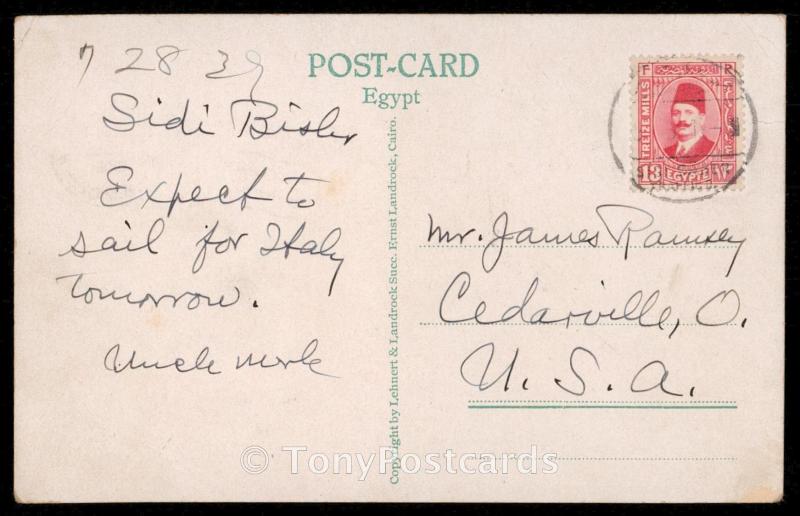 7 28 39
POST-CARD
Egypt
Sidi Bishr
Expect to
sail for Italy
tomorrow.
Uncle
Copyright by Lehnert & Landrock Succ. Ernst Landrock, Cairo.
F R
TREIZE MILLS
13 EGYPTE ١٣
Mr. James Ramsey
Cedarville, O.
U. S. A.
© TonyPostcards